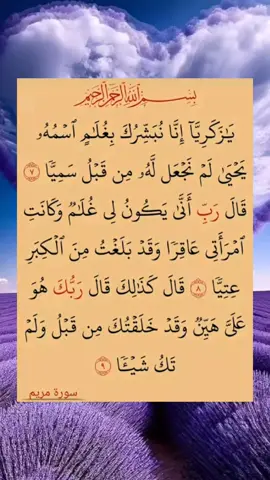 بِسْمِ ٱللَّهِ ٱلرَّحْمَٰنِ ٱلرَّحِيمِ
يَٰزَكَرِيَّآ إِنَّا نُبَشِّرُكَ بِغُلَٰمٍ ٱسْمُهُۥ
يَحْيَىٰ لَمْ نَجْعَل لَّهُۥ مِن قَبْلُ سَمِيًّا ٧
قَالَ رَبِّ أَنَّىٰ يَكُونُ لِى غُلَٰمٌ وَكَانَتِ
ٱمْرَأَتِى عَاقِرًا وَقَدْ بَلَغْتُ مِنَ ٱلْكِبَرِ
عِتِيًّا ٨ قَالَ كَذَٰلِكَ قَالَ رَبُّكَ هُوَ
عَلَىَّ هَيِّنٌ وَقَدْ خَلَقْتُكَ مِن قَبْلُ وَلَمْ
تَكُ شَيْـًٔا ٩
سورة مريم